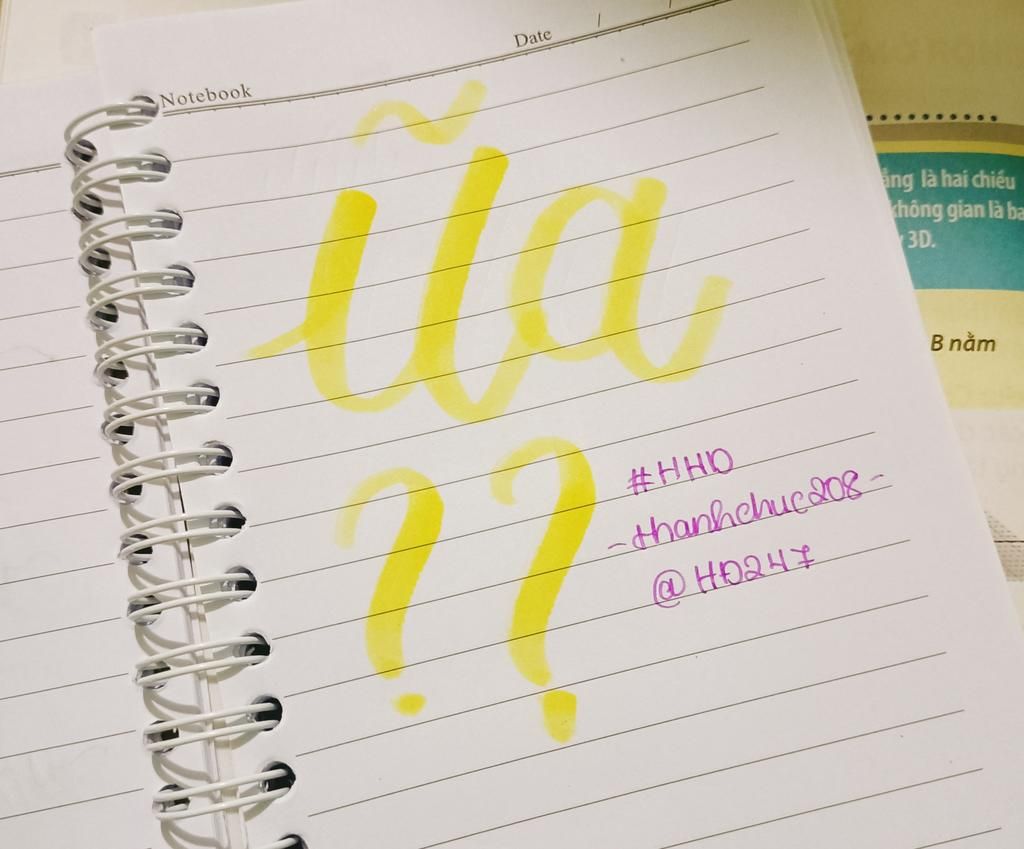 Notebook
Date
ũa
??
#HHD
-thanhchuc208-
@HĐ247
là hai chiều
không gian là
3D.
B nằm